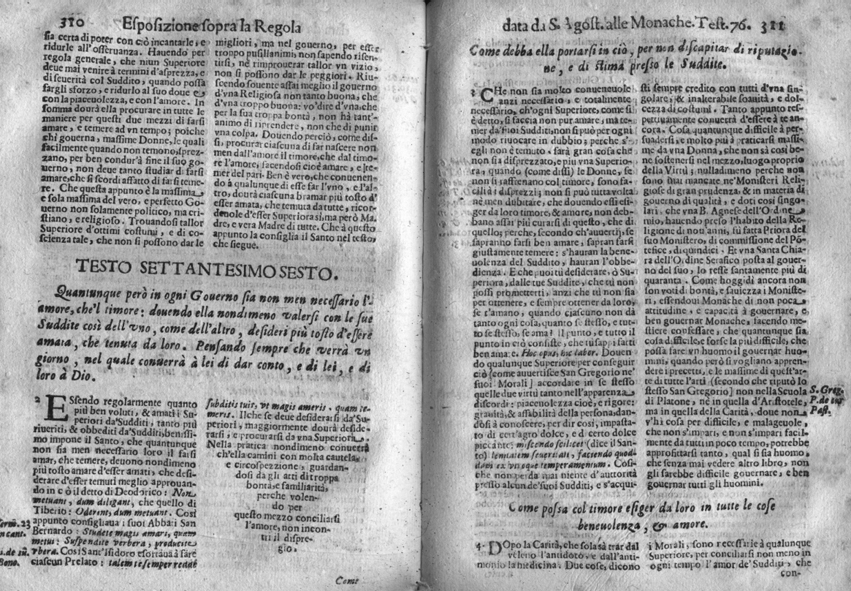 310 Esposizione sopra la Regola
sia certa di poter con ciò incantarle, e
ridurle all'osseruanza. Hauendo per
regola generale, che niun Superiore
deue mai venire à termini d'asprezza, e
di seuerità col Suddito, quando possa
fargli sforzo, e ridurlo al suo doue
con la piaceuolezza, e con l'amore. In
somma dourà ella procurare in tutte le
maniere per questi due mezzi di farsi
amare, e temere ad vn tempo; poiche
chi gouerna, massime Donne, le quali
facilmente quando non temono, sprez-
zano, per ben condurre à fine il suo go-
uerno, non deue tanto studiar di farsi
amare, che si scordi affatto di farsi teme-
re. Che questa appunto è la massima,
e sola massima del vero, e perfetto Go-
uerno non solamente politico, ma cri-
stiano, e religioso. Trouandosi tallor
Superiore d'ottimi costumi, e di co-
scienza tale, che non si possono dar le
migliori, ma nel gouerno, per esser
troppo pusillanimi, non sapendo risen-
tirsi, nè rimprouerar tallor vn vizio,
non si possono dar le peggiori. Riu-
scendo souente assai meglio il gouerno
d'vna Religiosa non tanto buona, che
d'vna troppo buona: vo'dire d'vna, che
per la sua troppa bontà, non hà tant'
animo di riprendere, non che di punir
vna colpa. Douendo perciò, come dis-
si, procurar ciascuna di far nascere non
men dall'amore il timore, che dal timo-
re l'amore, facendosi cioè amare, e te-
mer del pari. Ben è vero, che conuenen-
do à qualunque di esse far l'vno, e l'al-
tro, dourà ciascuna bramar più tosto d'
esser amata, che temuta da tutte, ricor-
deuole d'esser Superiora sì, ma però Ma-
dre, e vera Madre di tutte. Che à questo
appunto la consiglia il Santo nel testo,
che siegue.
TESTO SETTANTESIMO SESTO.
Quantunque però in ogni Gouerno sia non men necessario l'
amore, che'l timore: douendo ella nondimeno valersi con le sue
Suddite così dell'vno, come dell'altro, desideri più tosto d'essere
amata, che tenuta da loro. Pensando sempre che verrà vn
giorno, nel quale conuerrà à lei di dar conto, e di lei, e di
loro à Dio.
2 Essendo regolarmente quanto
più ben voluti, & amati i Su-
periori da'Sudditi, tanto più
riueriti, & obbediti da'Sudditi, benis-
simo impone il Santo, che quantunque
non sia men necessario loro il farsi
amar, che temere, deuono nondimeno
più tosto amare d'esser amati, che desi-
derare d'esser temuti meglio approuan-
do in ciò il detto di Teodorico: Non
metuant, dum diligant, che quello di
Tiberio: Oderint, dum metuant. Così
appunto consigliaua i suoi Abbati San
Bernardo: Studete magis amari, quam
metui: Suspendite verbera, producite
vbera. Così Sant'Isidoro esortaua à fare
ciascun Prelato: talem se semper reddat
subditis tuis, vt magis ametis, quam te-
meris. Il che se deue desiderarsi da'Su-
periori, maggiormente dourà deside-
rarsi, e procurarsi da vna Superiora.
Nella pratica nondimeno conuerrà
ch'ella camini con molta cautela,
e circospezzione, guardan-
dosi da gli atti di troppa
bontà, e familiarità,
perche volen-
do per
questo mezzo conciliarsi
l'amore, non incon-
tri il dispre-
gio.
Come
data da S. Agost. alle Monache. Test. 76. 311
Come debba ella portarsi in ciò, per non discapitar di riputazio-
ne, e di stima presso le Suddite.
3 CHe non sia molto conueneuole
anzi necessario, e totalmente
necessario, ch'ogni Superiore, come si
è detto, si faccia non pur amare, ma te-
mer da'suoi Sudditi, non si può per ogni
modo riuocare in dubbio; perche s'
egli non è temuto, sarà gran cosa che
non sia disprezzato, e più vna Superio-
ra, quando (come dissi) le Donne, se
non si raffrenano col timore, sono fa-
cili à i disprezzi; non si può tuttauolta
nè men dubitare, che douendo essi esi-
ger da loro timore, & amore, non deb-
bano assar più curarsi di questo, che di
quello; perche, secondo ch'auuerti, se
sapranno farsi ben amare, sapran farsi
giustamente temere: s'hauran la bene-
uolenza del Suddito, hauran l'obbe-
dienza. E che puoi tù desiderare, ò Su-
periora, dalle tue Suddite, che tù non
possi prometterti, anzi che tù non sia
per ottenere, e sempre ottener da loro,
se t'amano, quando ciascuno non dà
tanto ogni cola, quanto se stesso, e tut-
to se stesso, se ama? Il punto, e tutto il
punto in ciò consiste, che tu sappi farti
ben amare. Hoc opus, hic labor. Douen-
do qualunque Superiore per conseguir
ciò (come auuertisce San Gregorio ne'
suoi Morali) accordare in se stesso
quelle due virtù tanto nell'apparenza
discordi: piaceuolezza cioè, e rigore:
grauità, & affabilità della persona, dan-
dosi à conoscere, per dir così, impasta-
to di cert'agro dolce, e di certo dolce
piccante: miscendo scilicet (dice il San-
to) lenitatem seueritati, faciendo quod-
dam ex vtroque temperamentum. Cosi-
che non perda mai niente d'autorità
presso alcun de'suoi Sudditi, e s'acqui-
sti sempre credito con tutti d'vna sin-
golare, & inalterabile soauità, e dol-
cezza di costumi. Tanto appunto ret-
tamente conuerrà d'essere à te an-
cora. Cosa quantunque difficile à per-
suadersi, e molto più à praticarsi massi-
me da vna Donna, che non sà così be-
ne sostenersi nel mezzo, luogo proprio
della Virtù; nulladimeno perche non
sono mai mancate ne'Monisteri Reli-
giose di gran prudenza, & in materia di
gouerno di qualità, e doti così singo-
lari, che vna B. Agnese dell'Ordine
mio, hauendo preso l'habito della Reli-
gione di nou'anni, fù fatta Priora del
suo Monistero, di commissione del Pō-
tefice, di quindici. Et vna Santa Chiara
dell'Ordine Serafico posta al gouer-
no del suo, lo resse santamente più di
quaranta. Come hoggidì ancora non
son voti di bontà, e sauiezza i Moniste-
ri, essendoui Monache di non poca
attitudine, e capacità à gouernare, e,
ben gouernar Monache, facendo me-
stiere confessare, che quantunque sia
cosa difficile, e forse la più difficile, che
possa fare vn huomo il gouernar huo-
mini, quando però si vogliano appren-
dere i precetti, e le massime di quest'ar-
te di tutte l'arti (secondo che riputò lo
stesso San Gregorio) non nella Scuola
di Platone, nè in quella d'Aristotele,
ma in quella della Carità, doue non
v'hà cosa per difficile, e malageuole,
che non s'impari, e non s'impari facil-
mente da tutti in poco tempo, potrebbe
approfittarsi tanto, qual si sia huomo,
che senza mai vedere altro libro, non
gli sarebbe difficile gouernare, e ben
gouernar tutti gli huomini.
S. Greg.
P. de cur.
Past.
Come possa col timore esiger da loro in tutte le cose
beneuolenza, & amore.
4 DOpo la Carità, che sola sà trar dal
veleno l'antidoto, e dall'anti-
monio la medicina. Due cose, dicono
i Morali, sono necessarie à qualunque
Superiore, per conciliarsi non meno in
ogni tempo l'amor de' Sudditi, che
con-